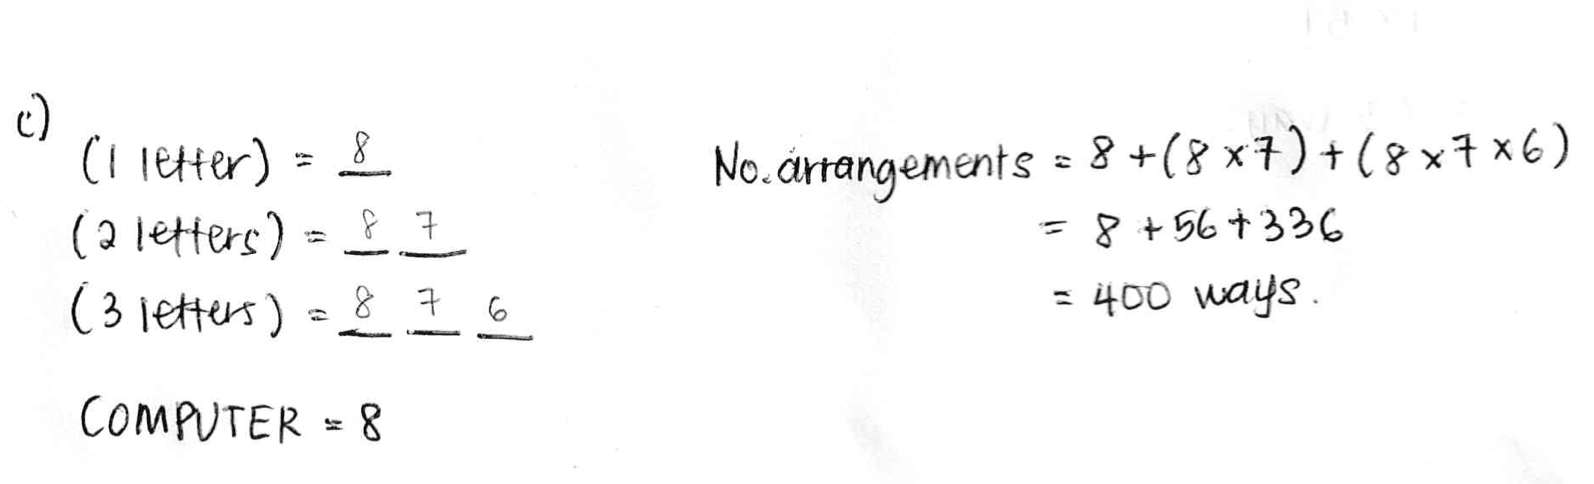 c)
(1 letter) = 8
(2 letters) = 8 7
(3 letters) = 8 7 6
COMPUTER = 8
No. arrangements = 8 + (8 × 7) + (8 × 7 × 6)
= 8 + 56 + 336
= 400 ways.